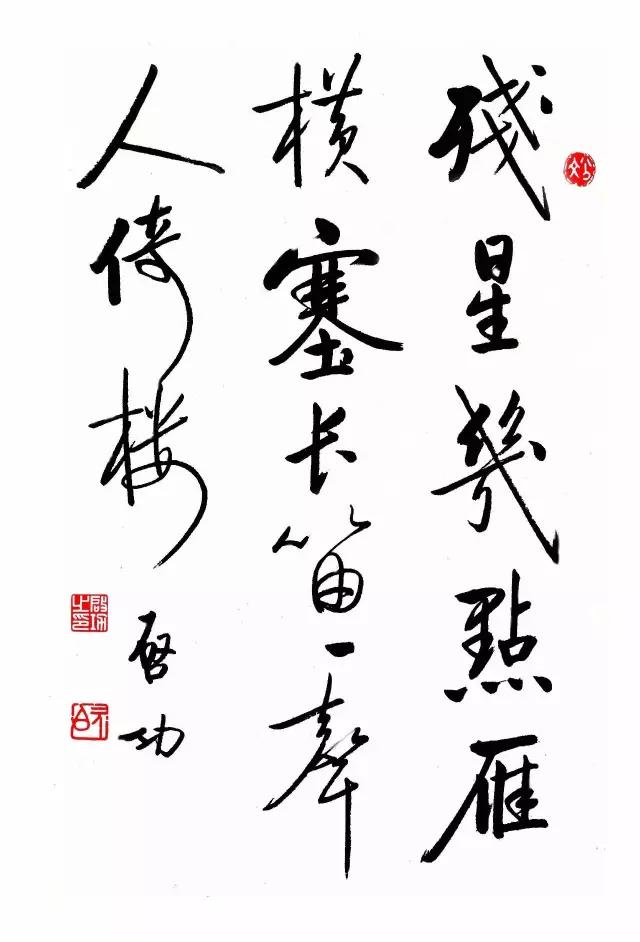 殘星幾點雁
橫塞長笛一聲
人倚樓
啟功